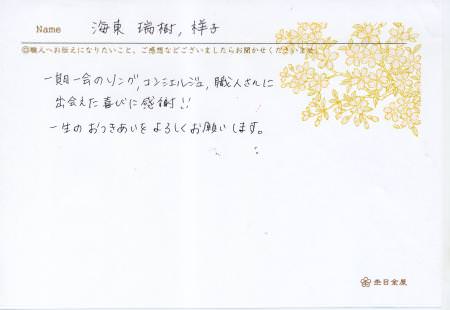 Name 海東 瑞樹, 様子
◎職人へお伝えになりたいこと、ご感想などございましたらお聞かせくださいませ
一期一会のリング, コンシェルジュ, 職人さんに
出会えた喜びに感謝!!
一生のおつきあいをよろしくお願いします。
杢目金屋